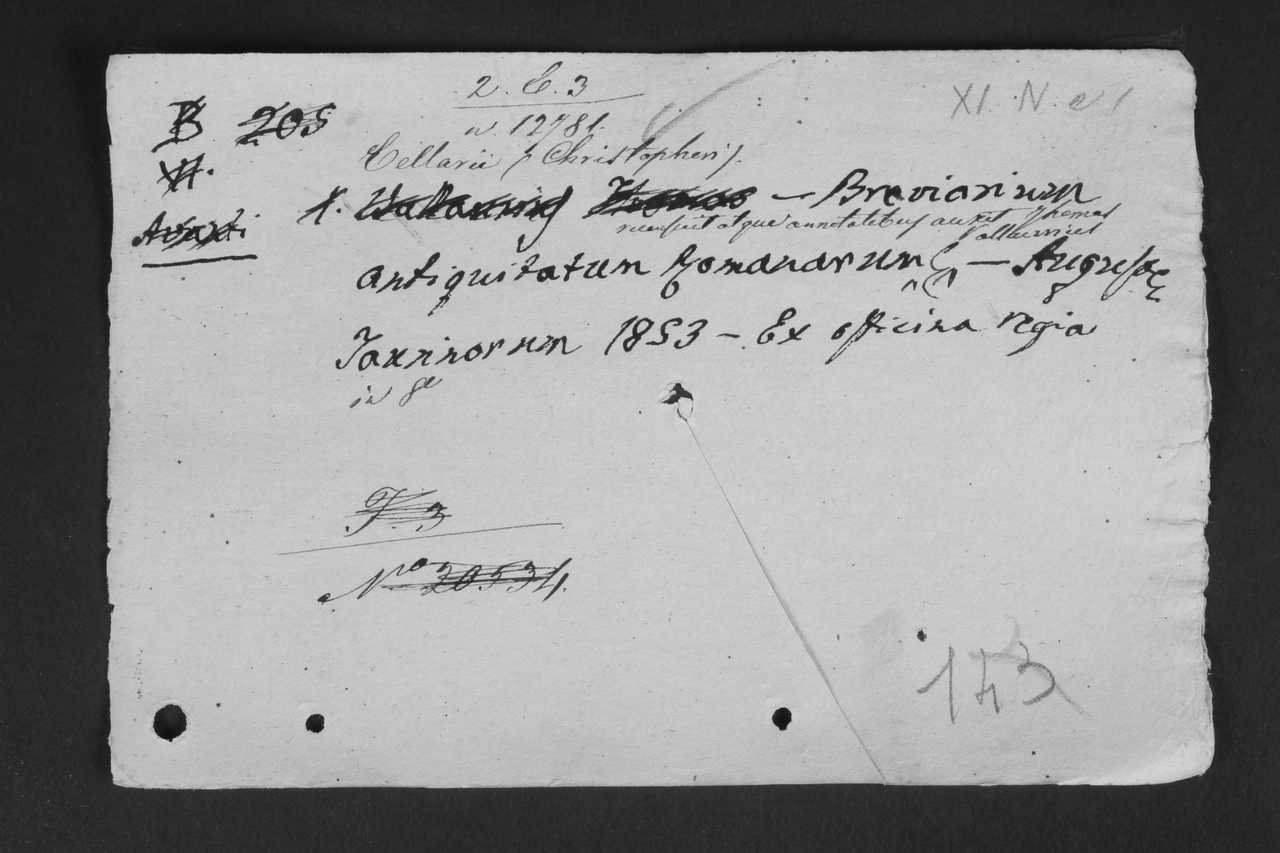 2. C. 3
n. 12781.
XI. N. e 1
B 205
VI.
Cellarii (Christophori).
1. Vallaurius Thomas — Breviarium
recensuit atque annotatibus auxit Thomas
Vallaurius
antiquitatum Romanarum — Augustae
Taurinorum 1853 – Ex officina regia
in 8°
F. 3
N° 20534.
143